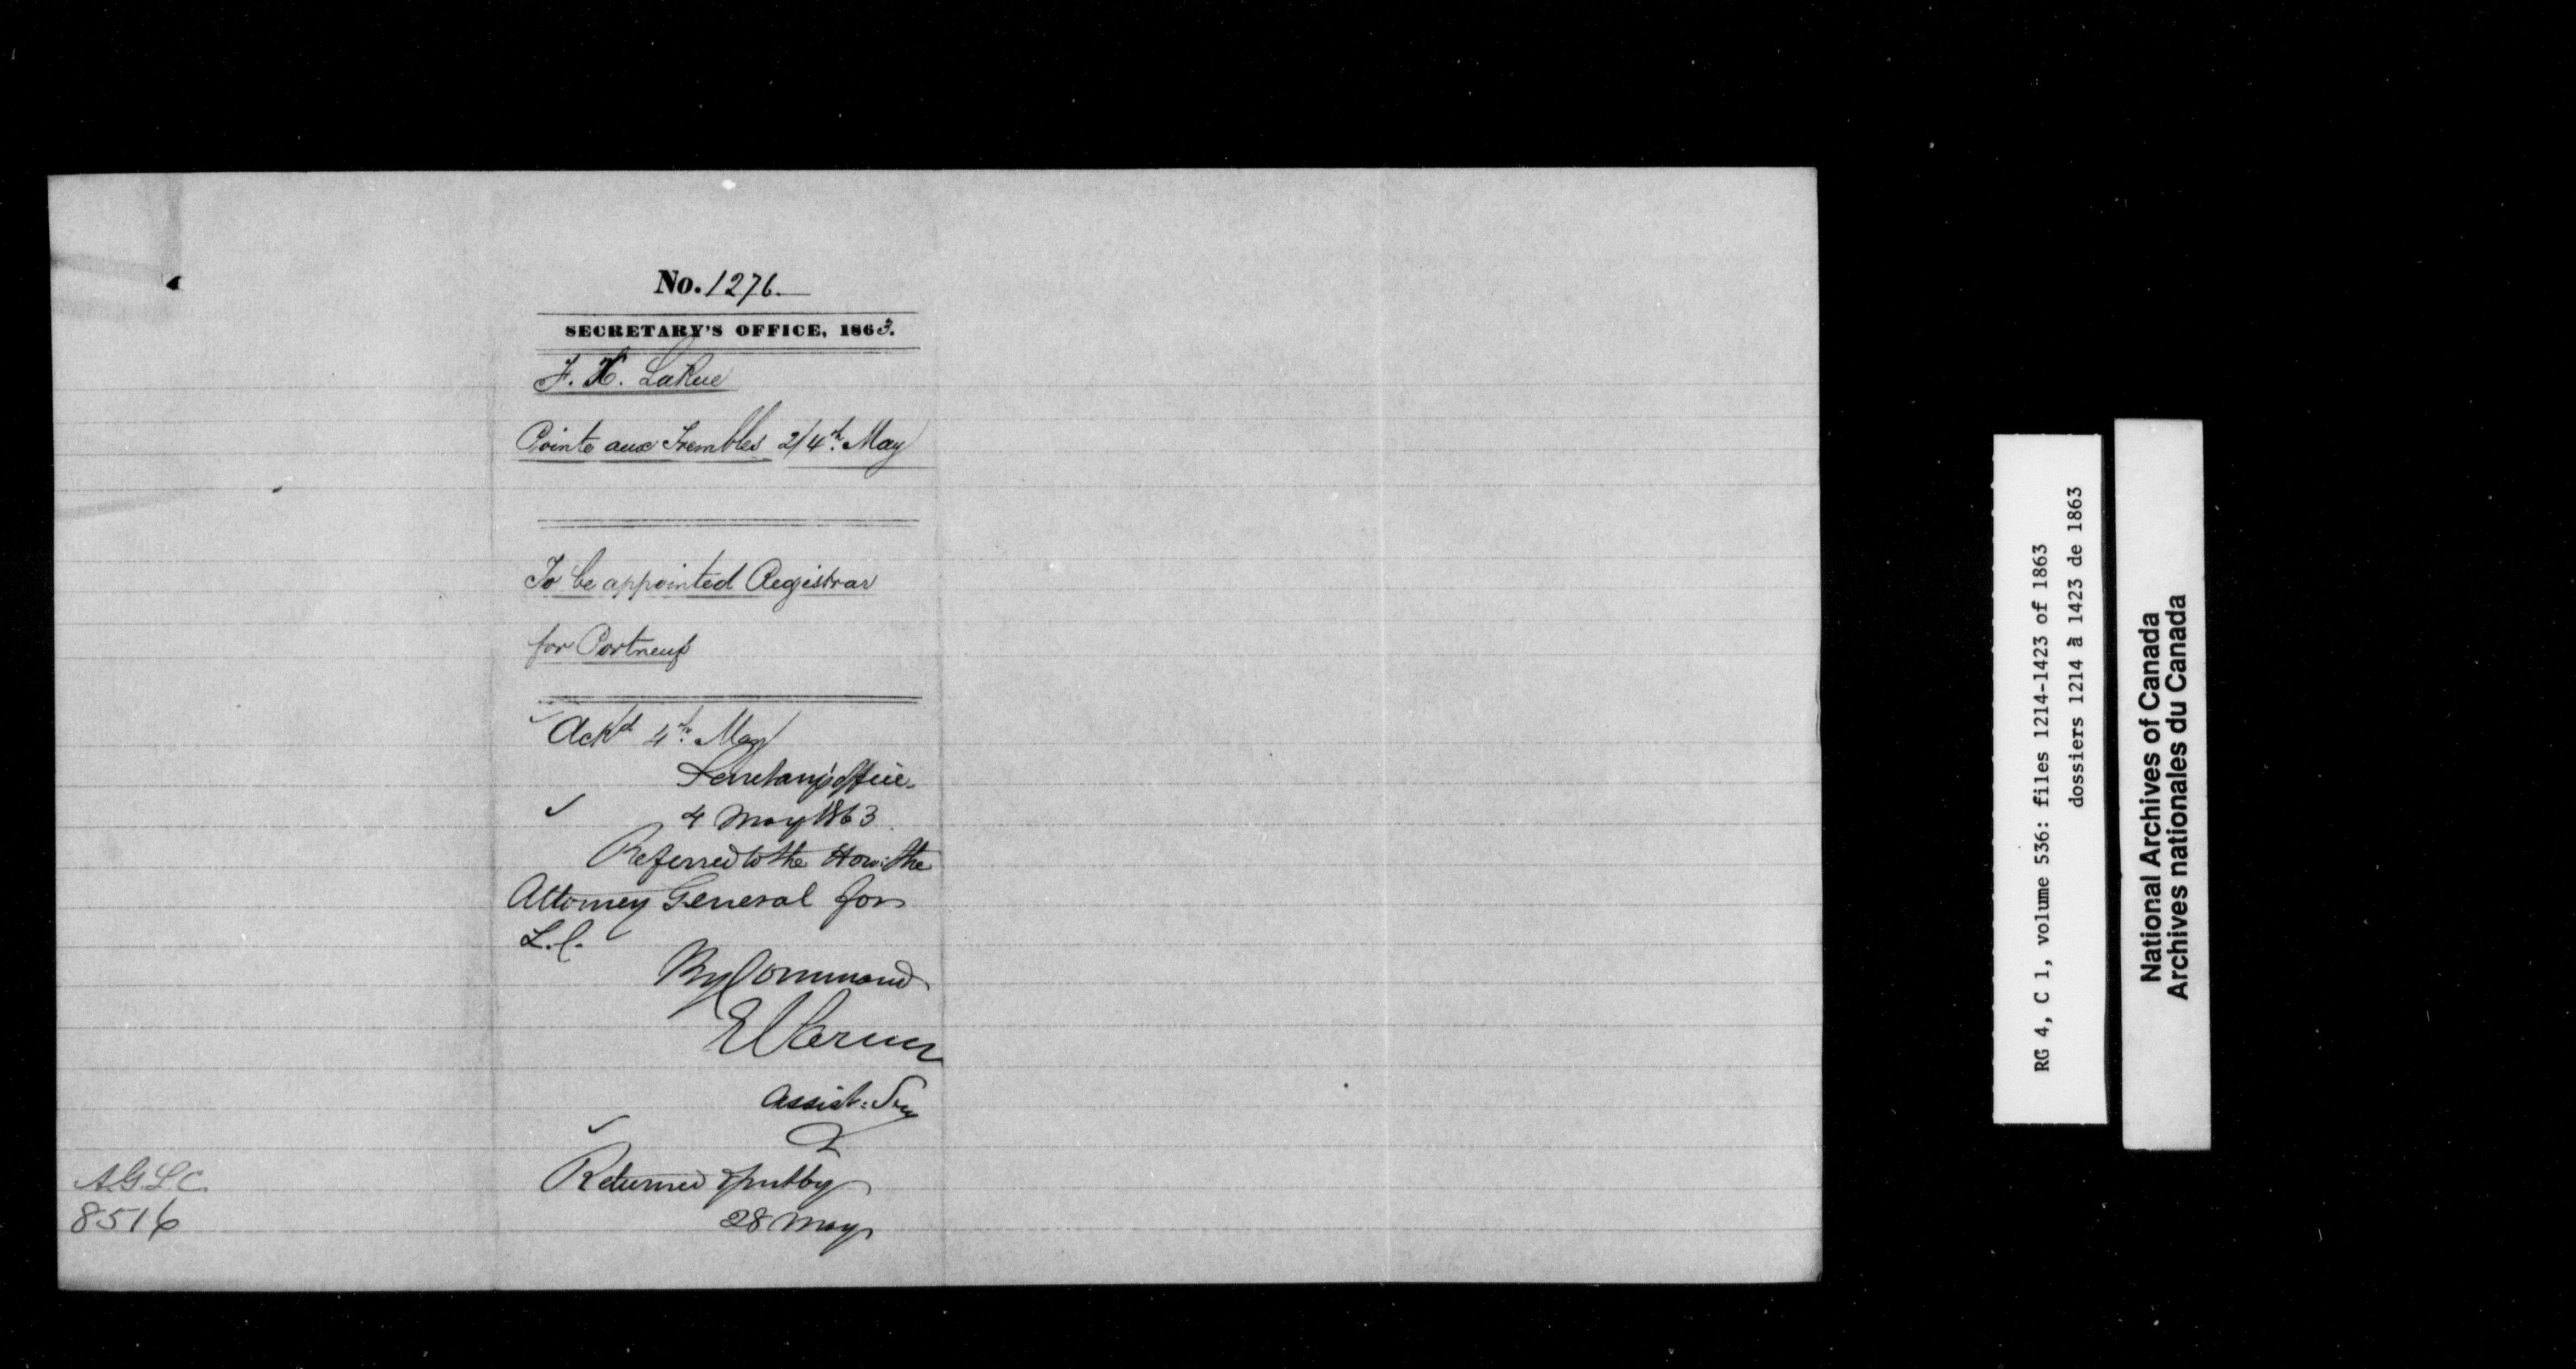 No. 1276.
SECRETARY'S OFFICE, 1863.
F. X. LaRue
Pointe aux Trembles 2/4th. May
To be appointed Registrar
for Portneuf
Ackd 4th. May
Secretary's office.
4 May 1863.
Referred to the Hon: the
Attorney General for
L.C.
By Command
Assist: Secy
Returned & put by
28 May
A.G.L.C.
8516
RG 4, C 1, volume 536: files 1214-1423 of 1863
dossiers 1214 à 1423 de 1863
National Archives of Canada
Archives nationales du Canada